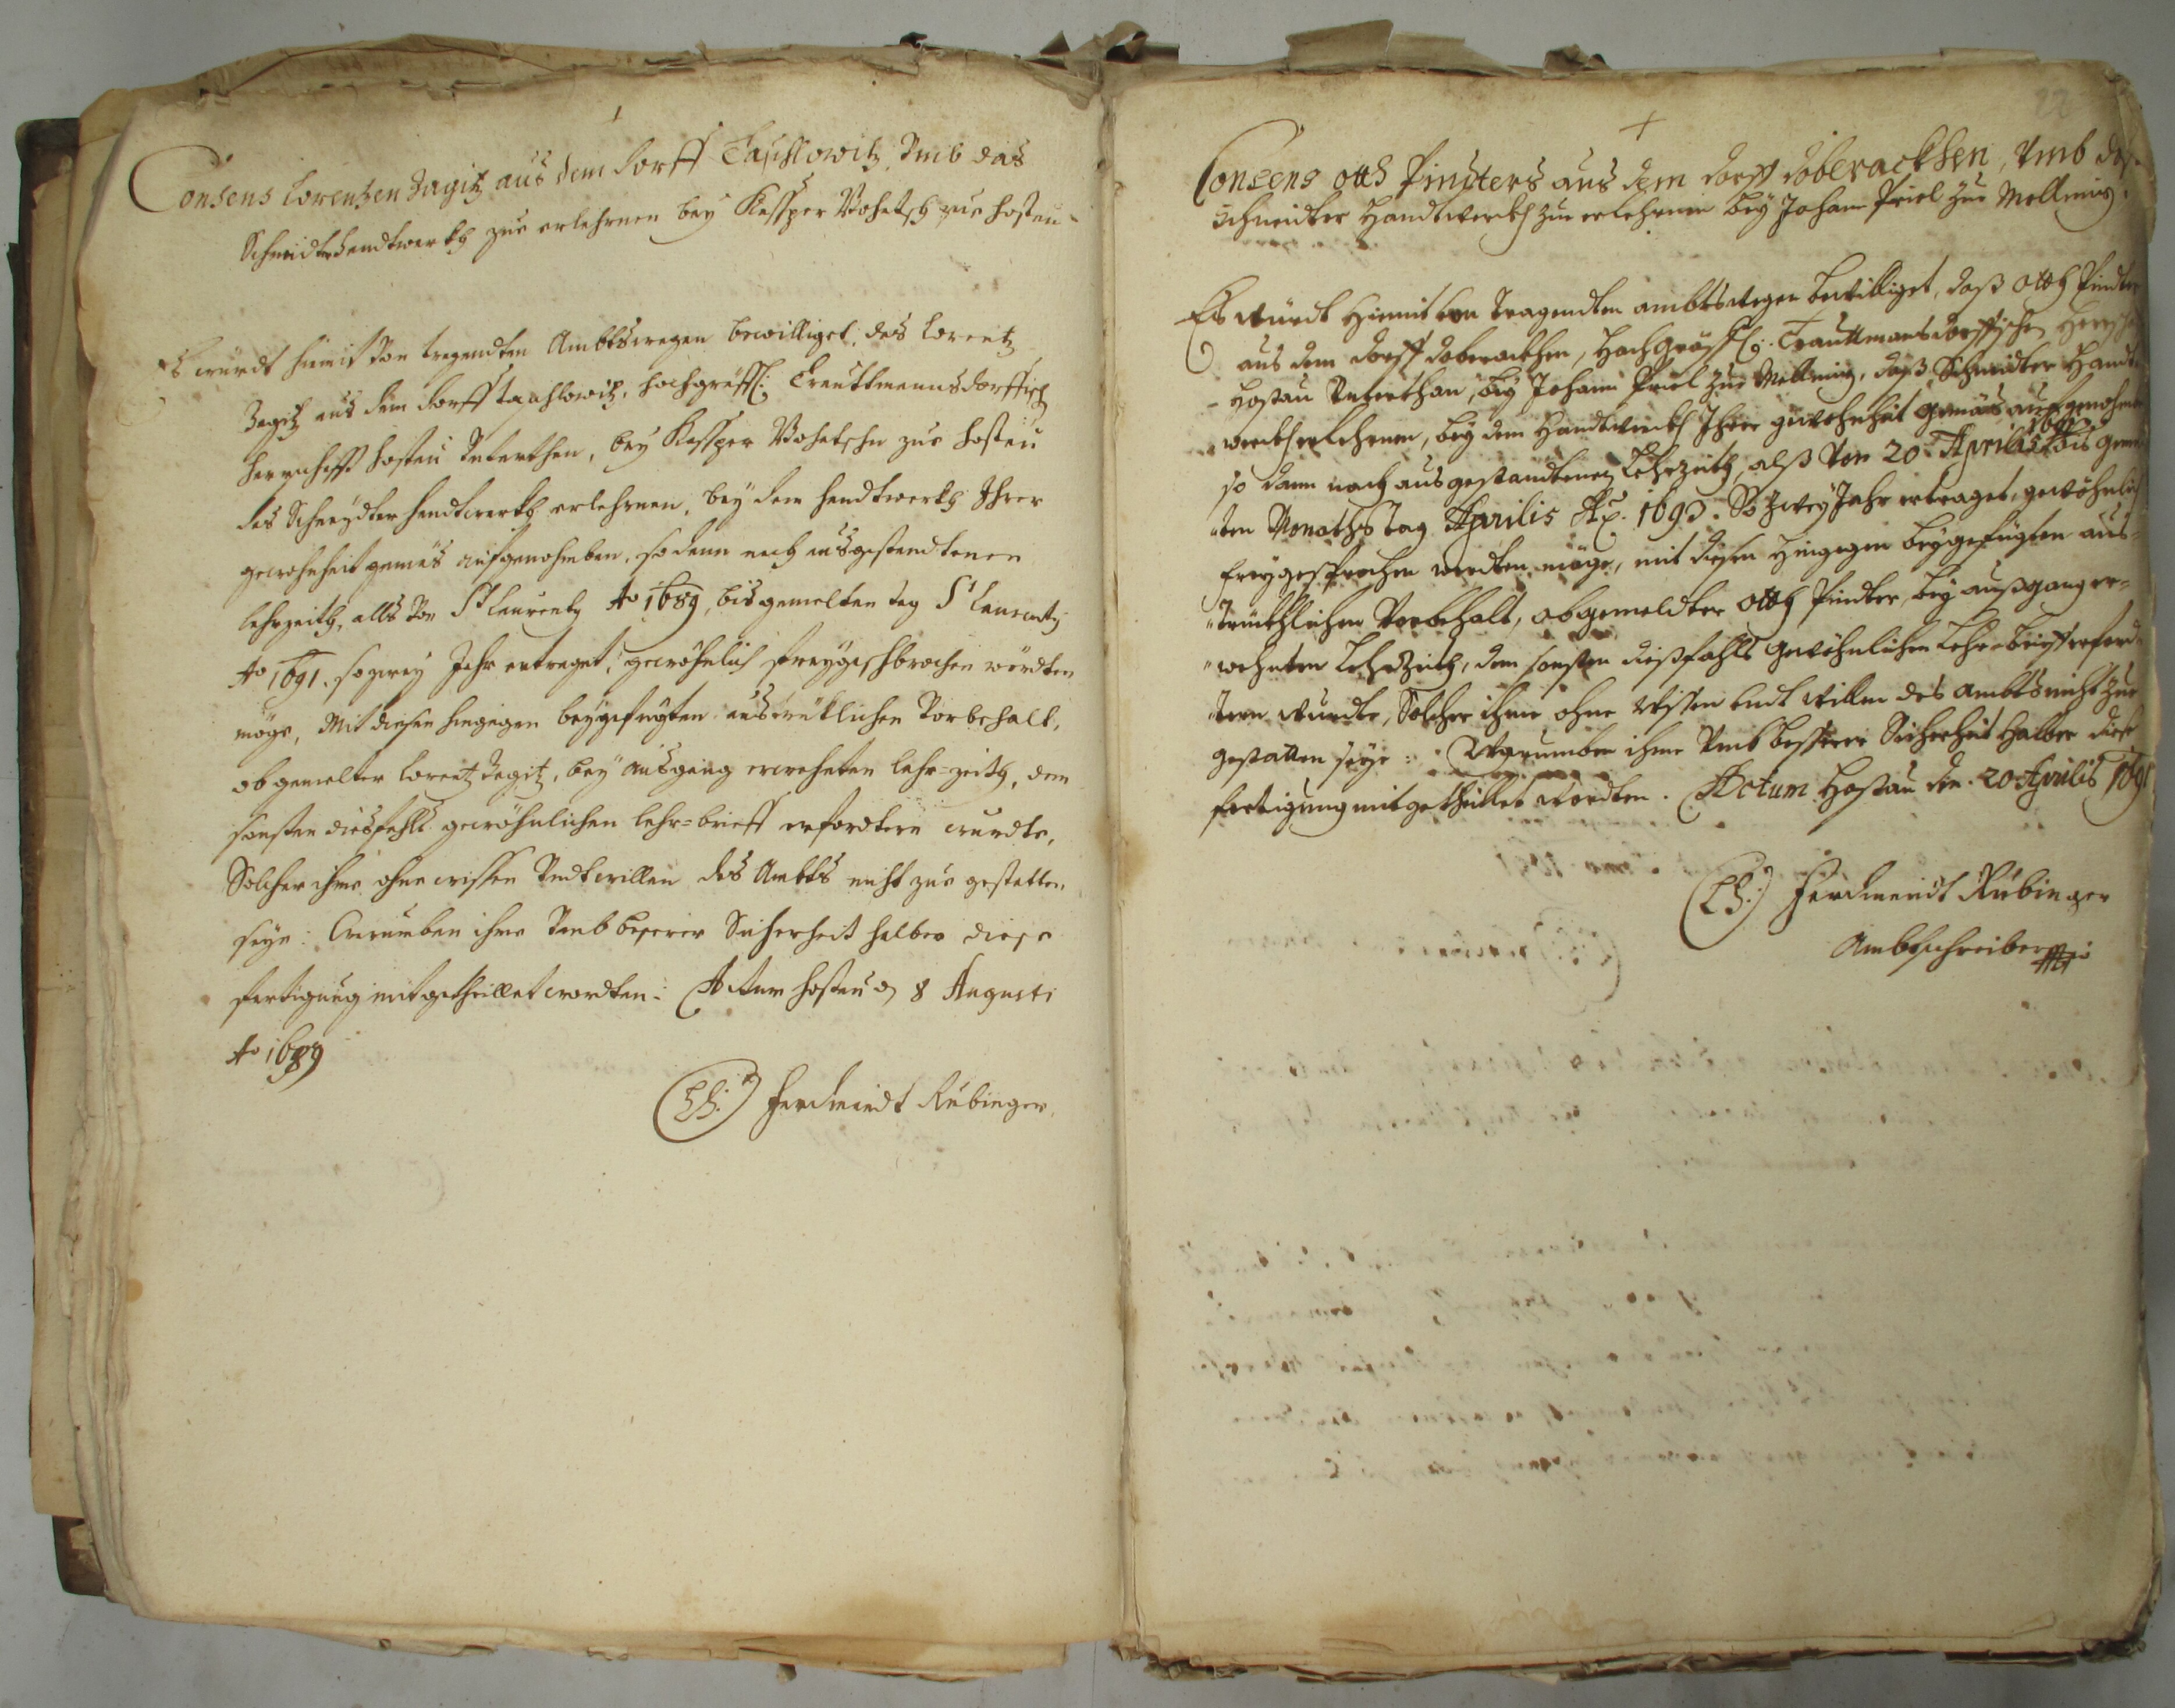 Consens Lorentzen Zagitz aus dem dorff Taschlowitz, Vmb das
Schneidterhandtwerkh zue erlehrnen bey Kassper Bohatsch zue hostau
Es würdt hiemit Von tragendten Ambtswegen bewilliget, das Lorentz
Zagitz aus dem dorff taschlowitz, hochgräffl: Trauttmannsdorffisch
herrschafft hostau Vnterthan, bey Kassper Bohatschn zue hostau
das Schneydter handtwerkh erlehrnen, bey dem handtwerkh Ihrer
gewohnheit gemäs aufgenohmben, so dann nach ausgestandtenen
lehrzeith, alls Von St Laurenty Ao 1689, bis gemelten tag St Laurenty
Ao 1691. so zwey Jahr ertraget, gewöhnlich freygeschbrochen wordten
möge, Mit diesen hingegen beygefügten austrüklichen Vorbehalt,
obgemelter Lorentz Zagitz, bey Ausgang erwehnten lehr=zeith, dem
sonsten diesfahls gewöhnlichen lehr=brieff erfordtern wurdte,
Solcher ihme ohne wissen Vndt willen des Ambts nicht zue gestatten
seye: Warumben ihme Vmb beserer Sicherheit halber diese
fertigung mitgetheillet wordten: Actum hostau d 8 Augusti
Ao 1689
(LS:) Ferdinandt Rübinger
22
Consens Otth Pindters aus dem dorff doberackhen, Vmb das
Schneidter Handtwerckh zue erlehrnen bey Johann Priel zue Mellniz.
Es würdt Hiemit von Tragendten ambtswegen bewilliget, daß Otth Pindter
aus dem dorff doberackhen, Hochgräffl: Trauttmansdorffischen Herrsch
Hostau Vnterthan, bey Johann Priel zue Mellniz, daß Schneidter Handt
werckh erlehrnen, bey dem Handtwerckh Ihrer gewohnheit gemäs aufgenohmen
so dann nach ausgestandtenen Lehrzeith, alß Von 20 Aprilis bis gemel
ten Monaths tag Aprilis Ao. 1693. So zwey Jahr ertraget, gewöhnlich
freygesprochen werdten möge, mit diesen Hingegen beygefügten aus=
trückhlichen Vorbehalt, obgemeldter Otth Pindter, bey außgang er=
wehnten LehrZeith, dem sonsten dießfahls gewöhnlichen Lehr=brieff erford
tern wurdte, Solcher ihme ohne Wissen vndt willen des ambts nicht zue
gestatten seye: Warumben ihme Vmb besserer Sicherheit halber diese
fertigung mitgetheillet wordten. Actum Hostau den 20 Aprilis 1691
(LS:) Ferdinandt Rübinger
Ambtschreiber